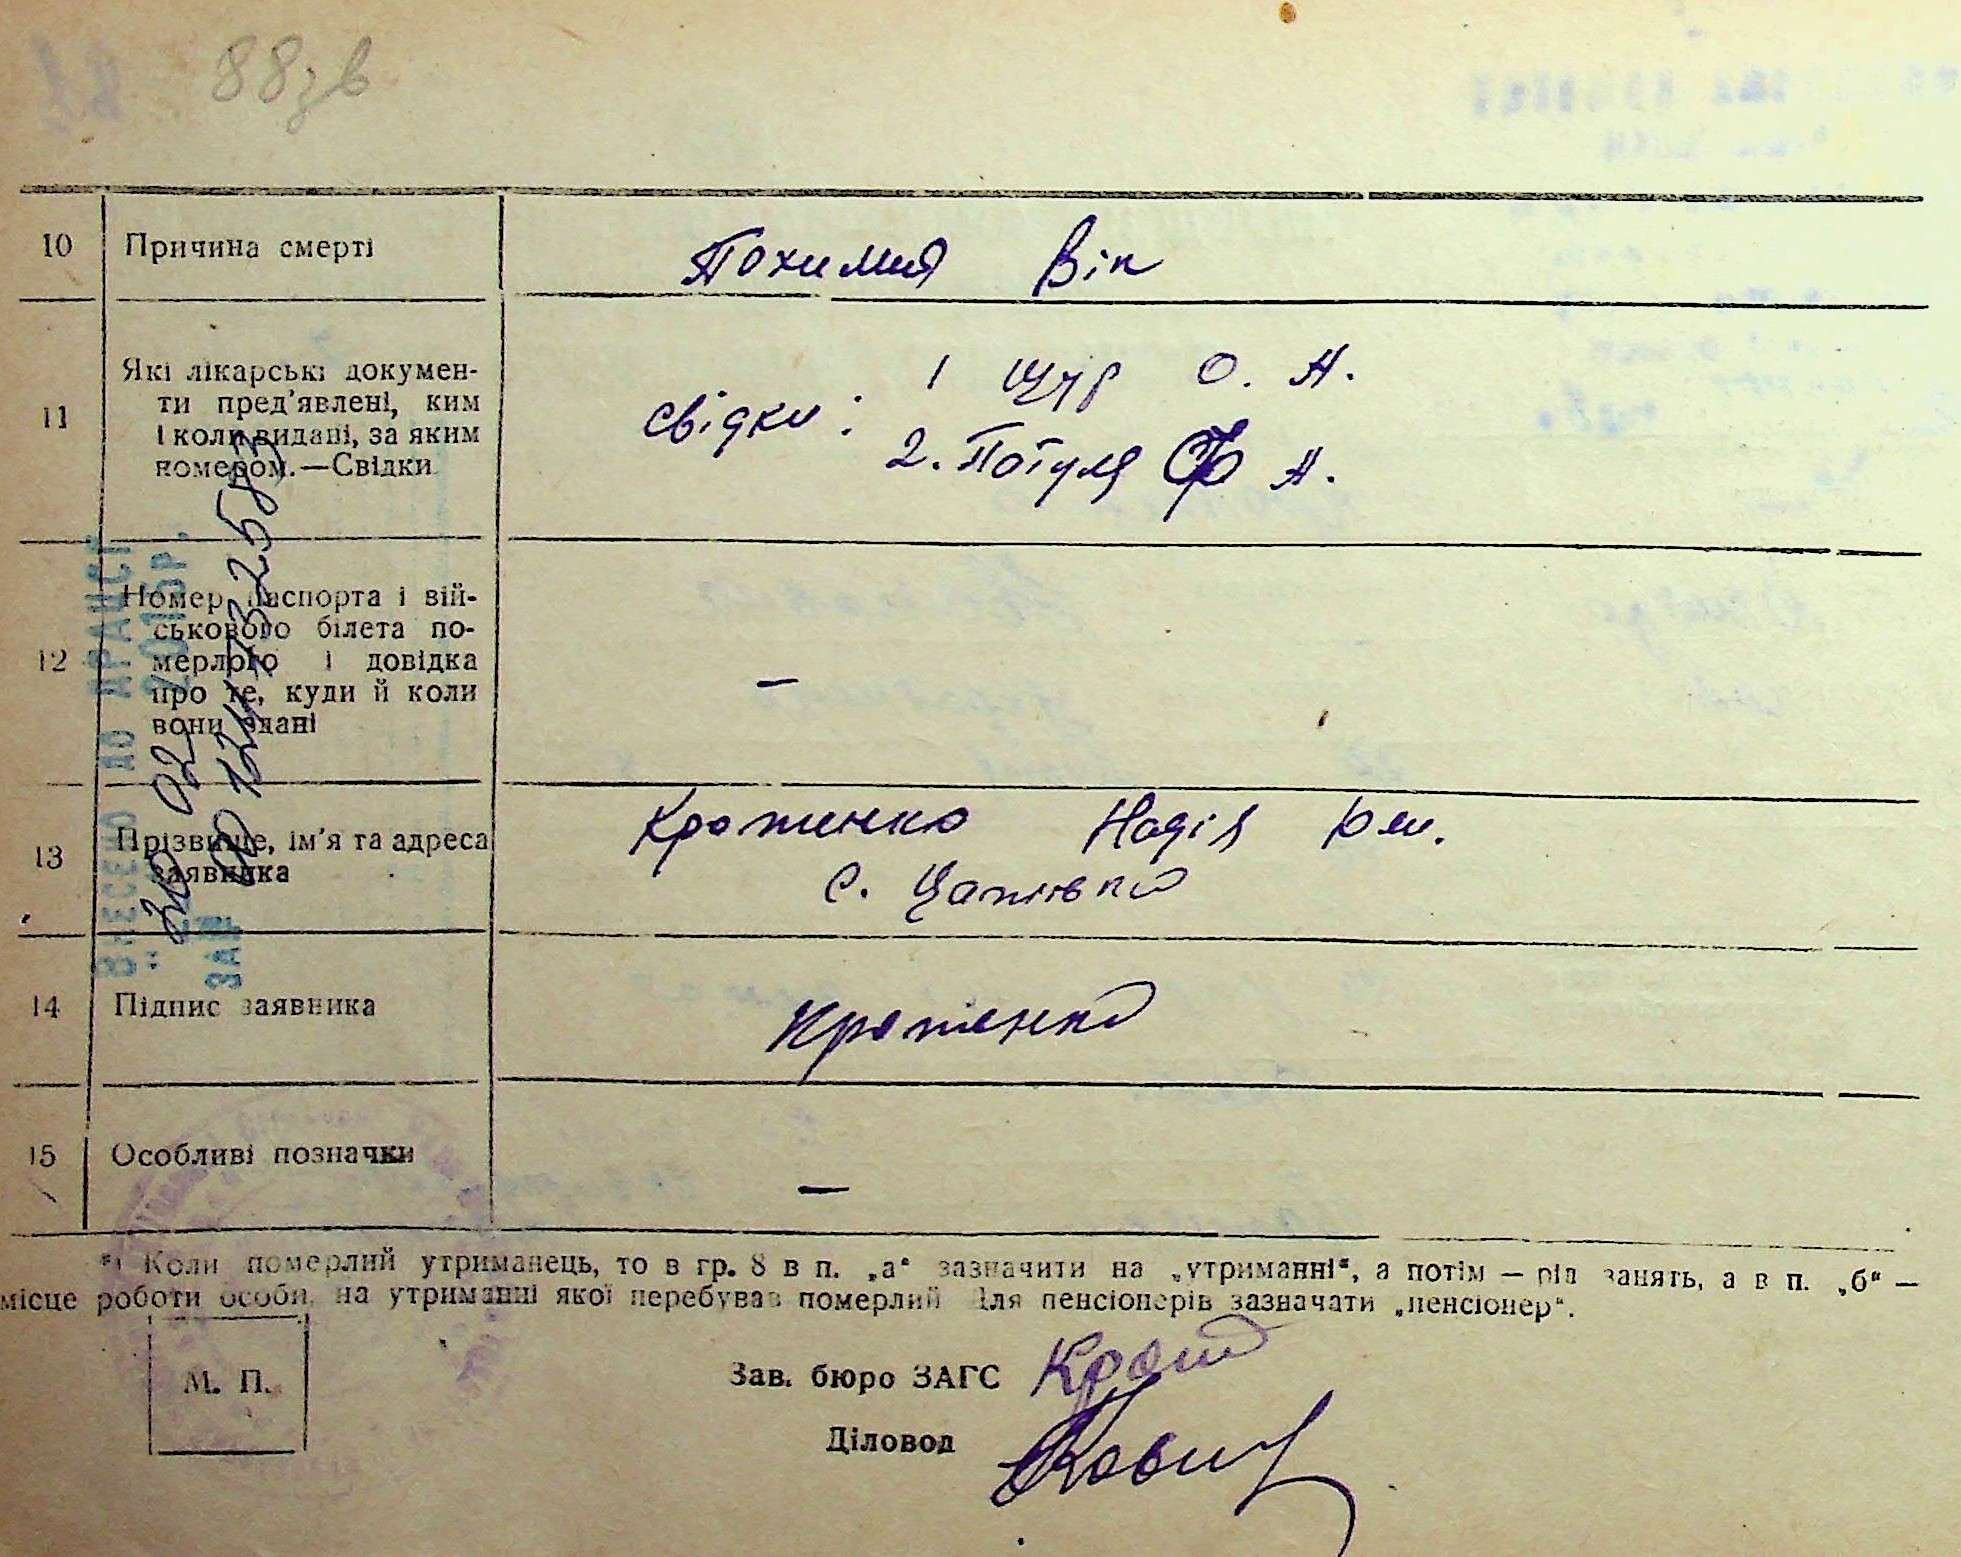 88зв
10 Причина смерті Похилий Вік
11 Які лікарські докумен-
ти пред'явлені, ким
і коли видані, за яким
номером.—Свідки
свідки: 1 Щур О. А.
2. Потуля Ф А.
12 Номер паспорта і вій-
ськового білета по-
мерлого і довідка
про те, куди й коли
вони здані
—
13 Прізвище, ім'я та адреса
заявника
Надія Юли.
с.
14 Підпис заявника
15 Особливі позначки
—
ВНЕСЕНО ДО ДРАЦСГ
" 20 02 201 р.
ЗА №
*) Коли померлий утриманець, то в гр. 8 в п. „а“ зазначити на „утриманні“, а потім — рід занять, а в п. „б“ —
місце роботи особи, на утриманні якої перебував померлий Для пенсіонерів зазначати „пенсіонер“.
М. П.
Зав. бюро ЗАГС
Діловод